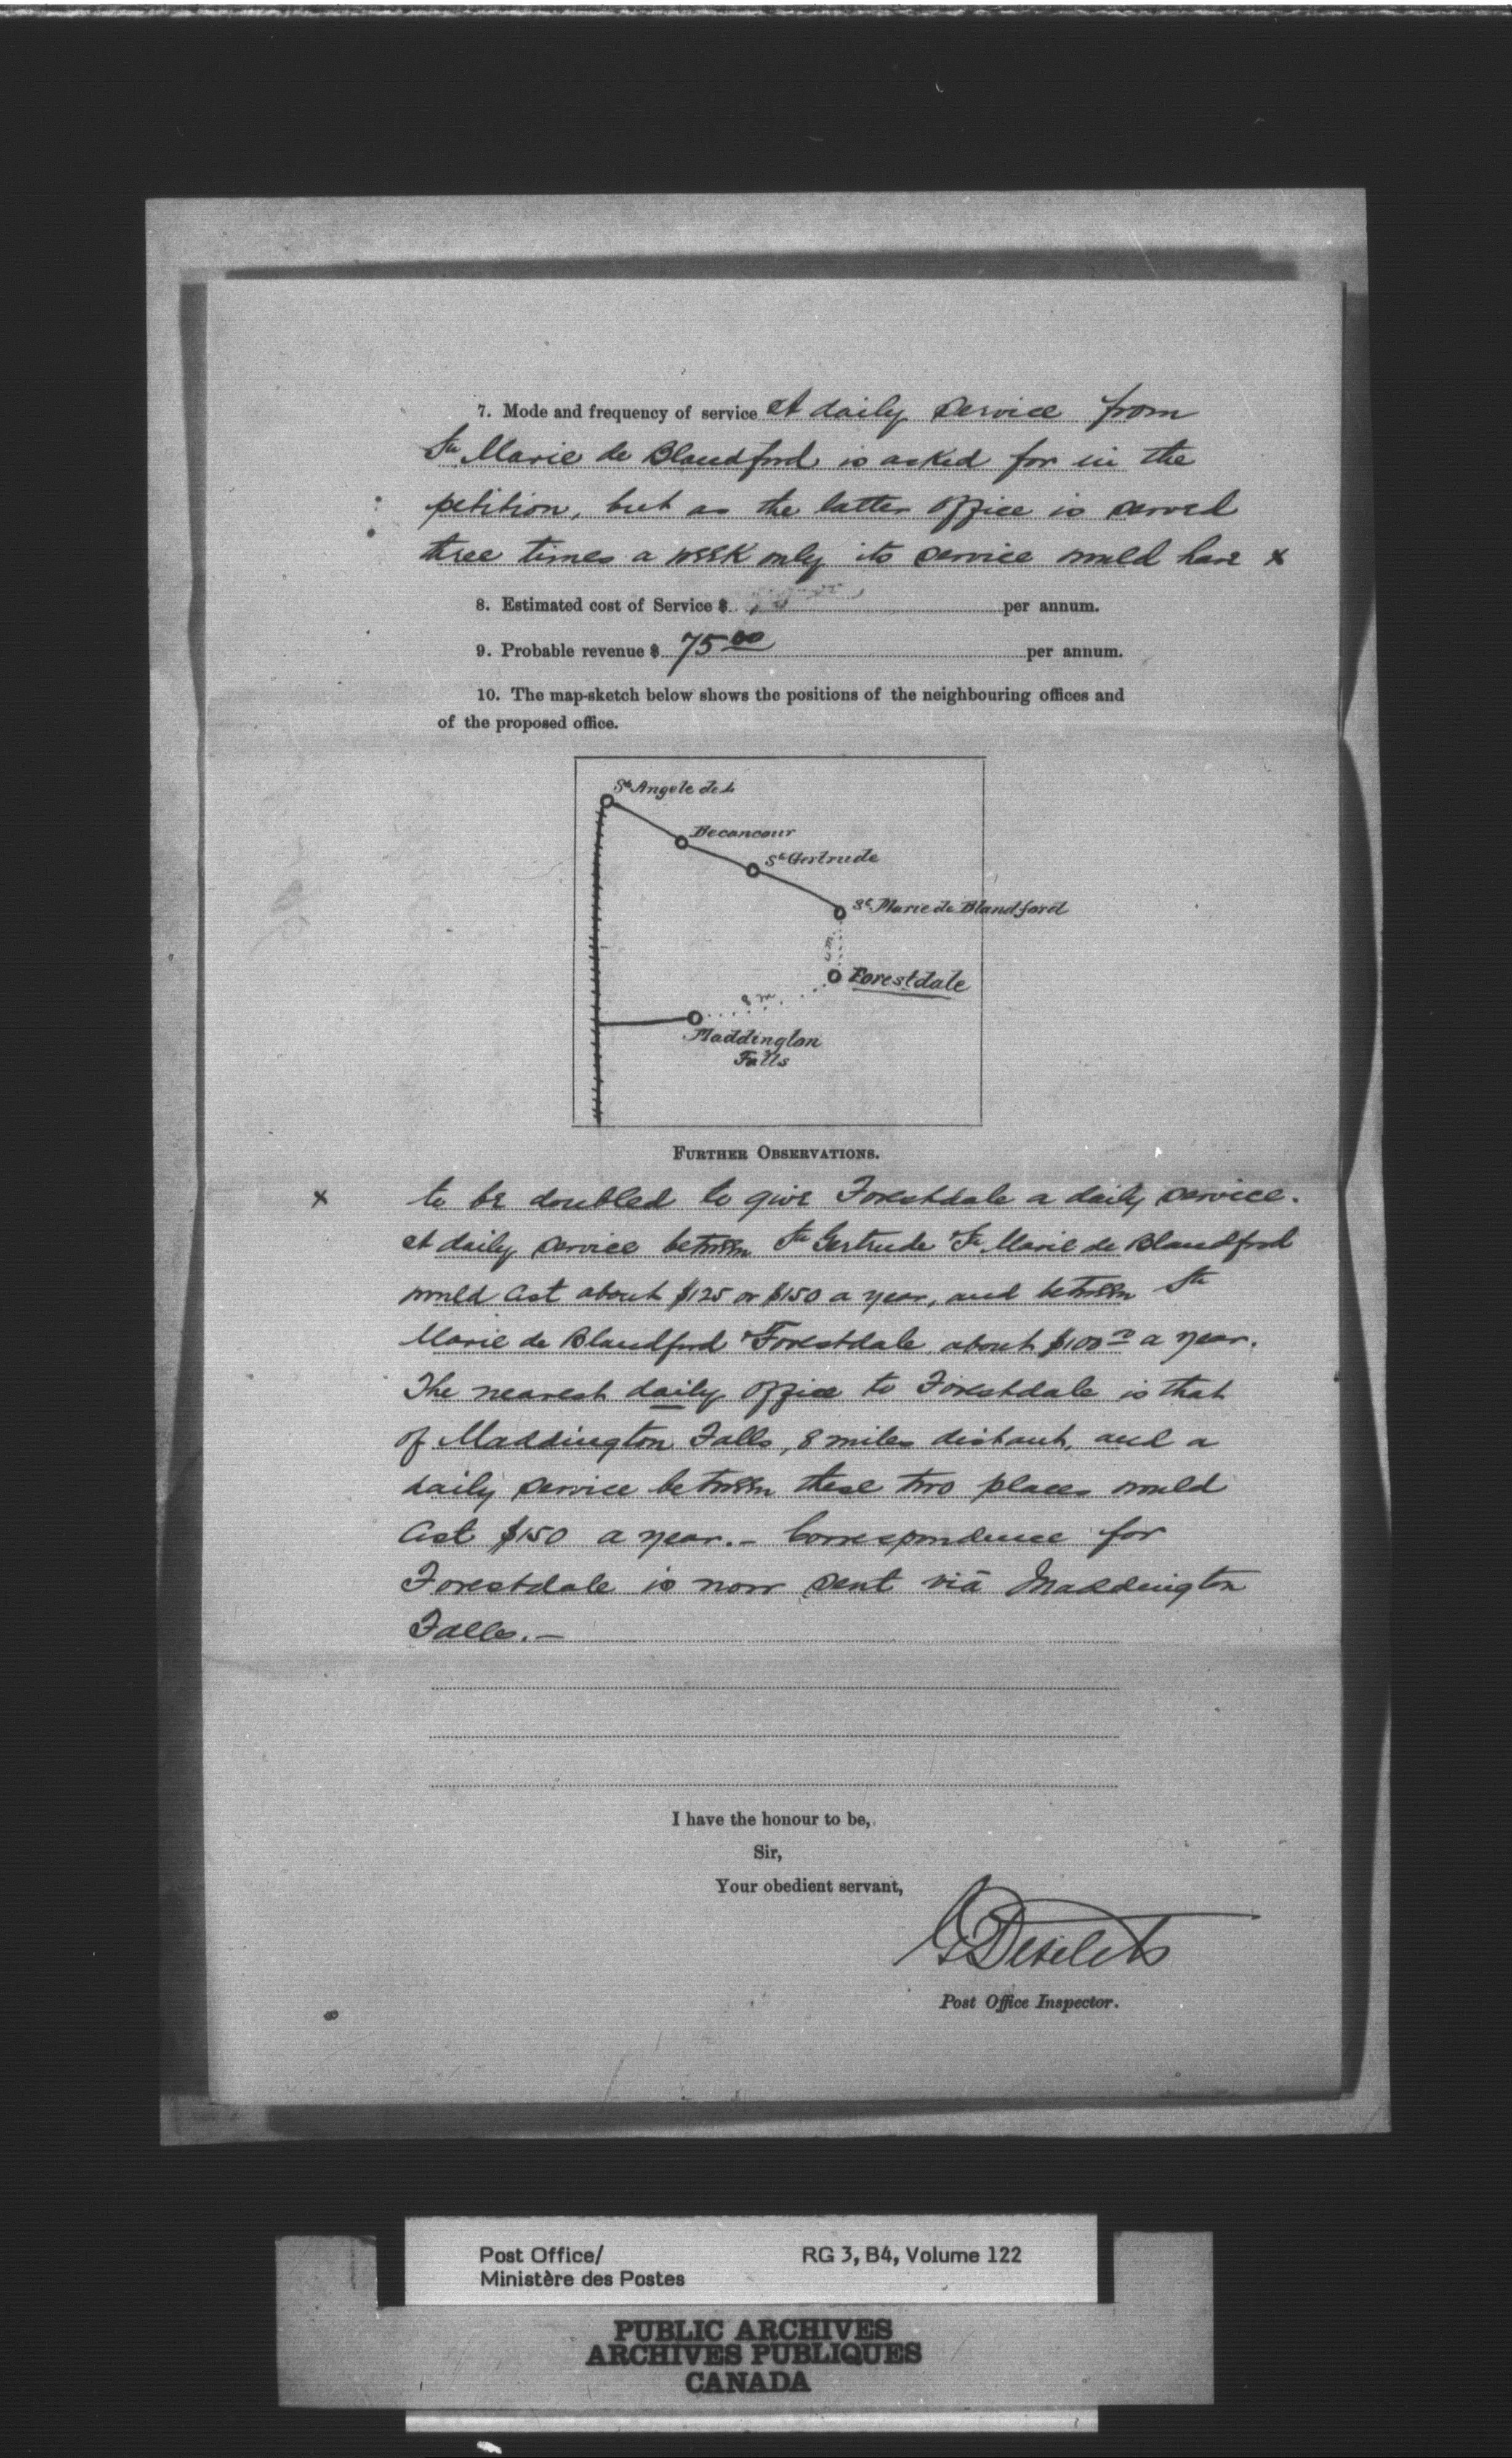 7. Mode and frequency of service A daily service from
Ste Marie de Blandford is asked for in the
petition, but as the latter office is served
three times a week only its service would have x
8. Estimated cost of Service $ per annum.
9. Probable revenue $ 75 00 per annum.
10. The map-sketch below shows the positions of the neighbouring offices and
of the proposed office.
St Angele de L
Becancour
St Gertrude
St Marie de Blandford
Forestdale
8 m
Maddington
Falls
FURTHER OBSERVATIONS.
x to be doubled to give Forestdale a daily service.
A daily service between Ste Gertrude & Ste Marie de Blandford
would cost about $125 or $150 a year, and between Ste
Marie de Blandford & Forestdale about $100 a year.
The nearest daily office to Forestdale is that
of Maddington Falls, 8 miles distant, and a
daily service between these two places would
cost $150 a year.- Correspondence for
Forestdale is now sent via Maddington
Falls.-
I have the honour to be,
Sir,
Your obedient servant,
Desilets
Post Office Inspector.
Post Office/ RG 3, B4, Volume 122
Ministère des Postes
PUBLIC ARCHIVES
ARCHIVES PUBLIQUES
CANADA